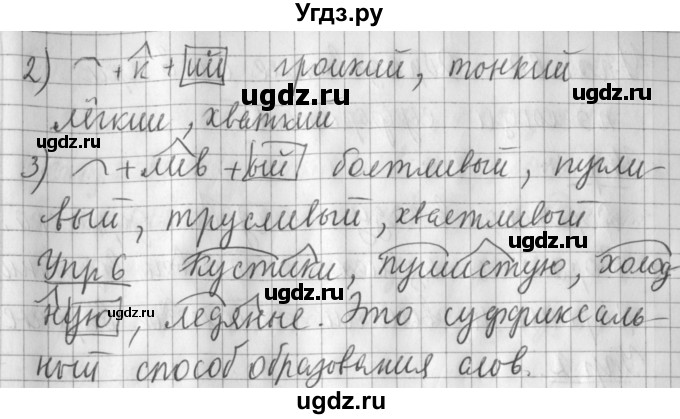 Угдз.ру
2) ⌒ + к + ий громкий, тонкий
лёгкий, хваткий
3) ⌒ + лив + ый болтливый, пугли-
вый, трусливый, хвастливый
Упр 6 Кустики, пушистую, холод-
ную, ледяные. Это суффиксаль-
ный способ образования слов.
ugdz.ru
ugdz.ru
ugdz.ru
ugdz.ru
ugdz.ru
ugdz.ru
ugdz.ru
ugdz.ru